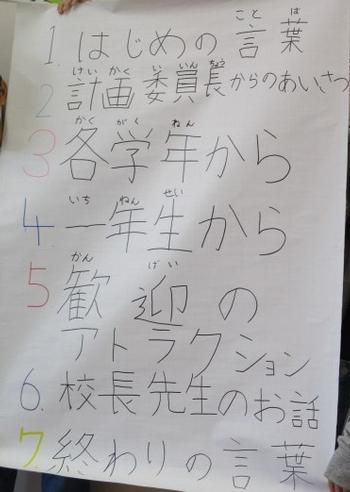 こと は
1. はじめの言葉
けい かく い いん ちょう
2 計画委員長からのあいさつ
かく がく ねん
3 各学年から
いち ねん せい
4 一年生から
かん げい
5 歓迎の
アトラクション
6. 校長先生のお話
7. 終わりの言葉